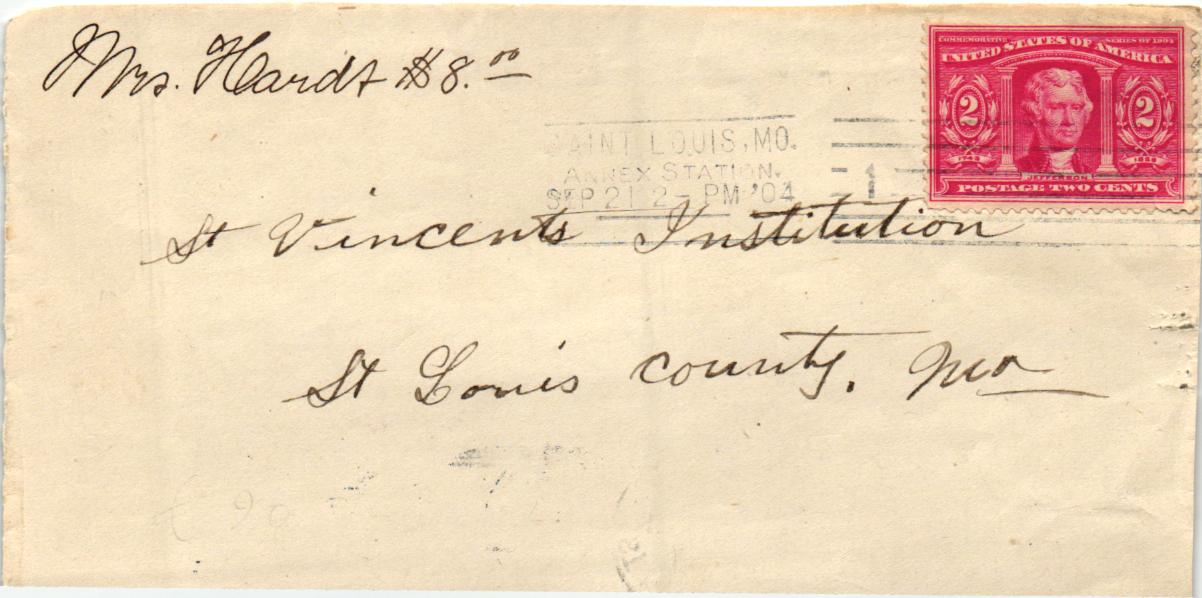 Mrs. Hardt $8.00
COMMEMORATIVE SERIES OF 1904
UNITED STATES OF AMERICA
2 2
JEFFERSON
POSTAGE TWO CENTS
SAINT LOUIS, MO.
ANNEX STATION.
SEP 21 2 - PM '04
1
St Vincents Institution
St Louis county, Mo